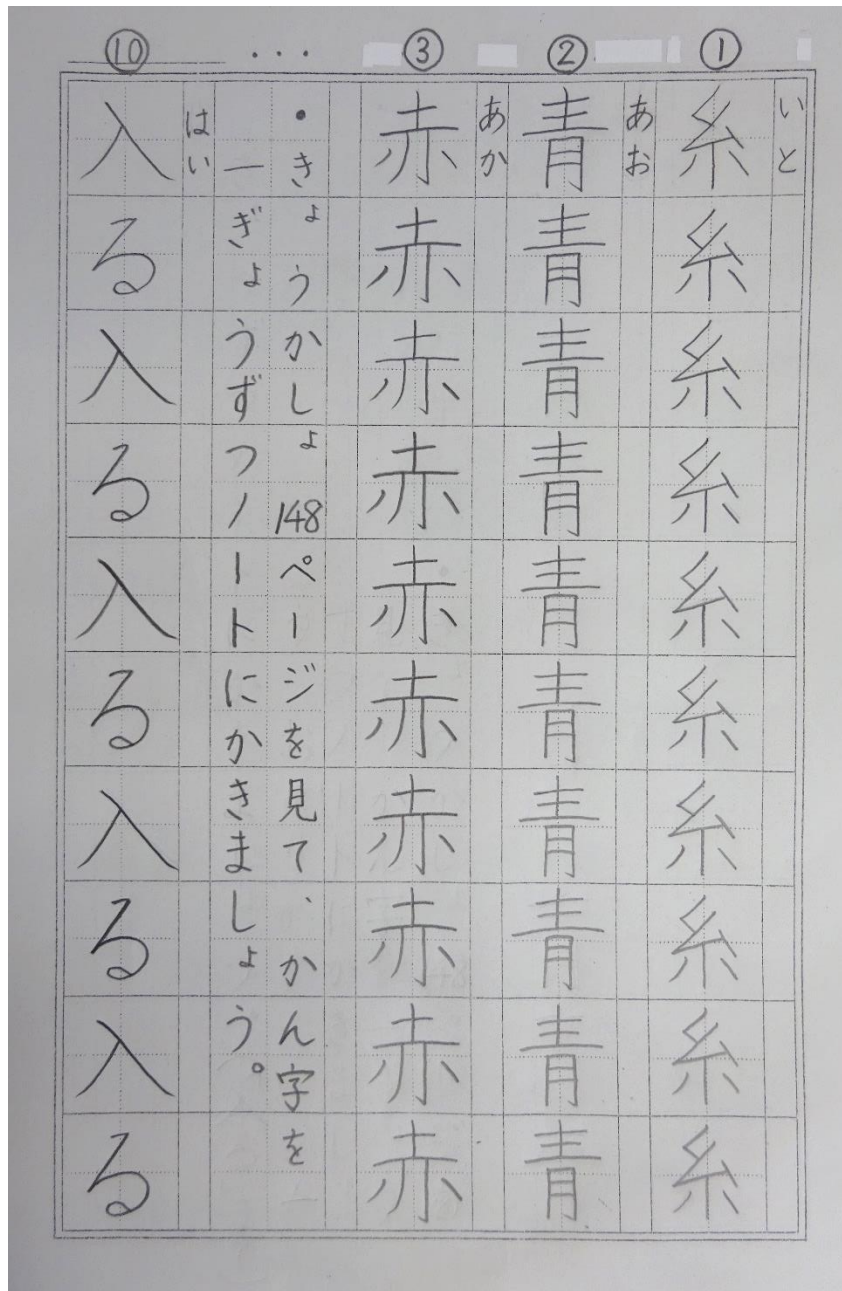 ①
いと
糸糸糸糸糸糸糸糸糸糸
②
あお
青青青青青青青青青青
③
あか
赤赤赤赤赤赤赤赤赤赤
・・・
・きょうかしょ148ページを見て、かん字を
一ぎょうずつノートにかきましょう。
⑩
はい
入る入る入る入る入る